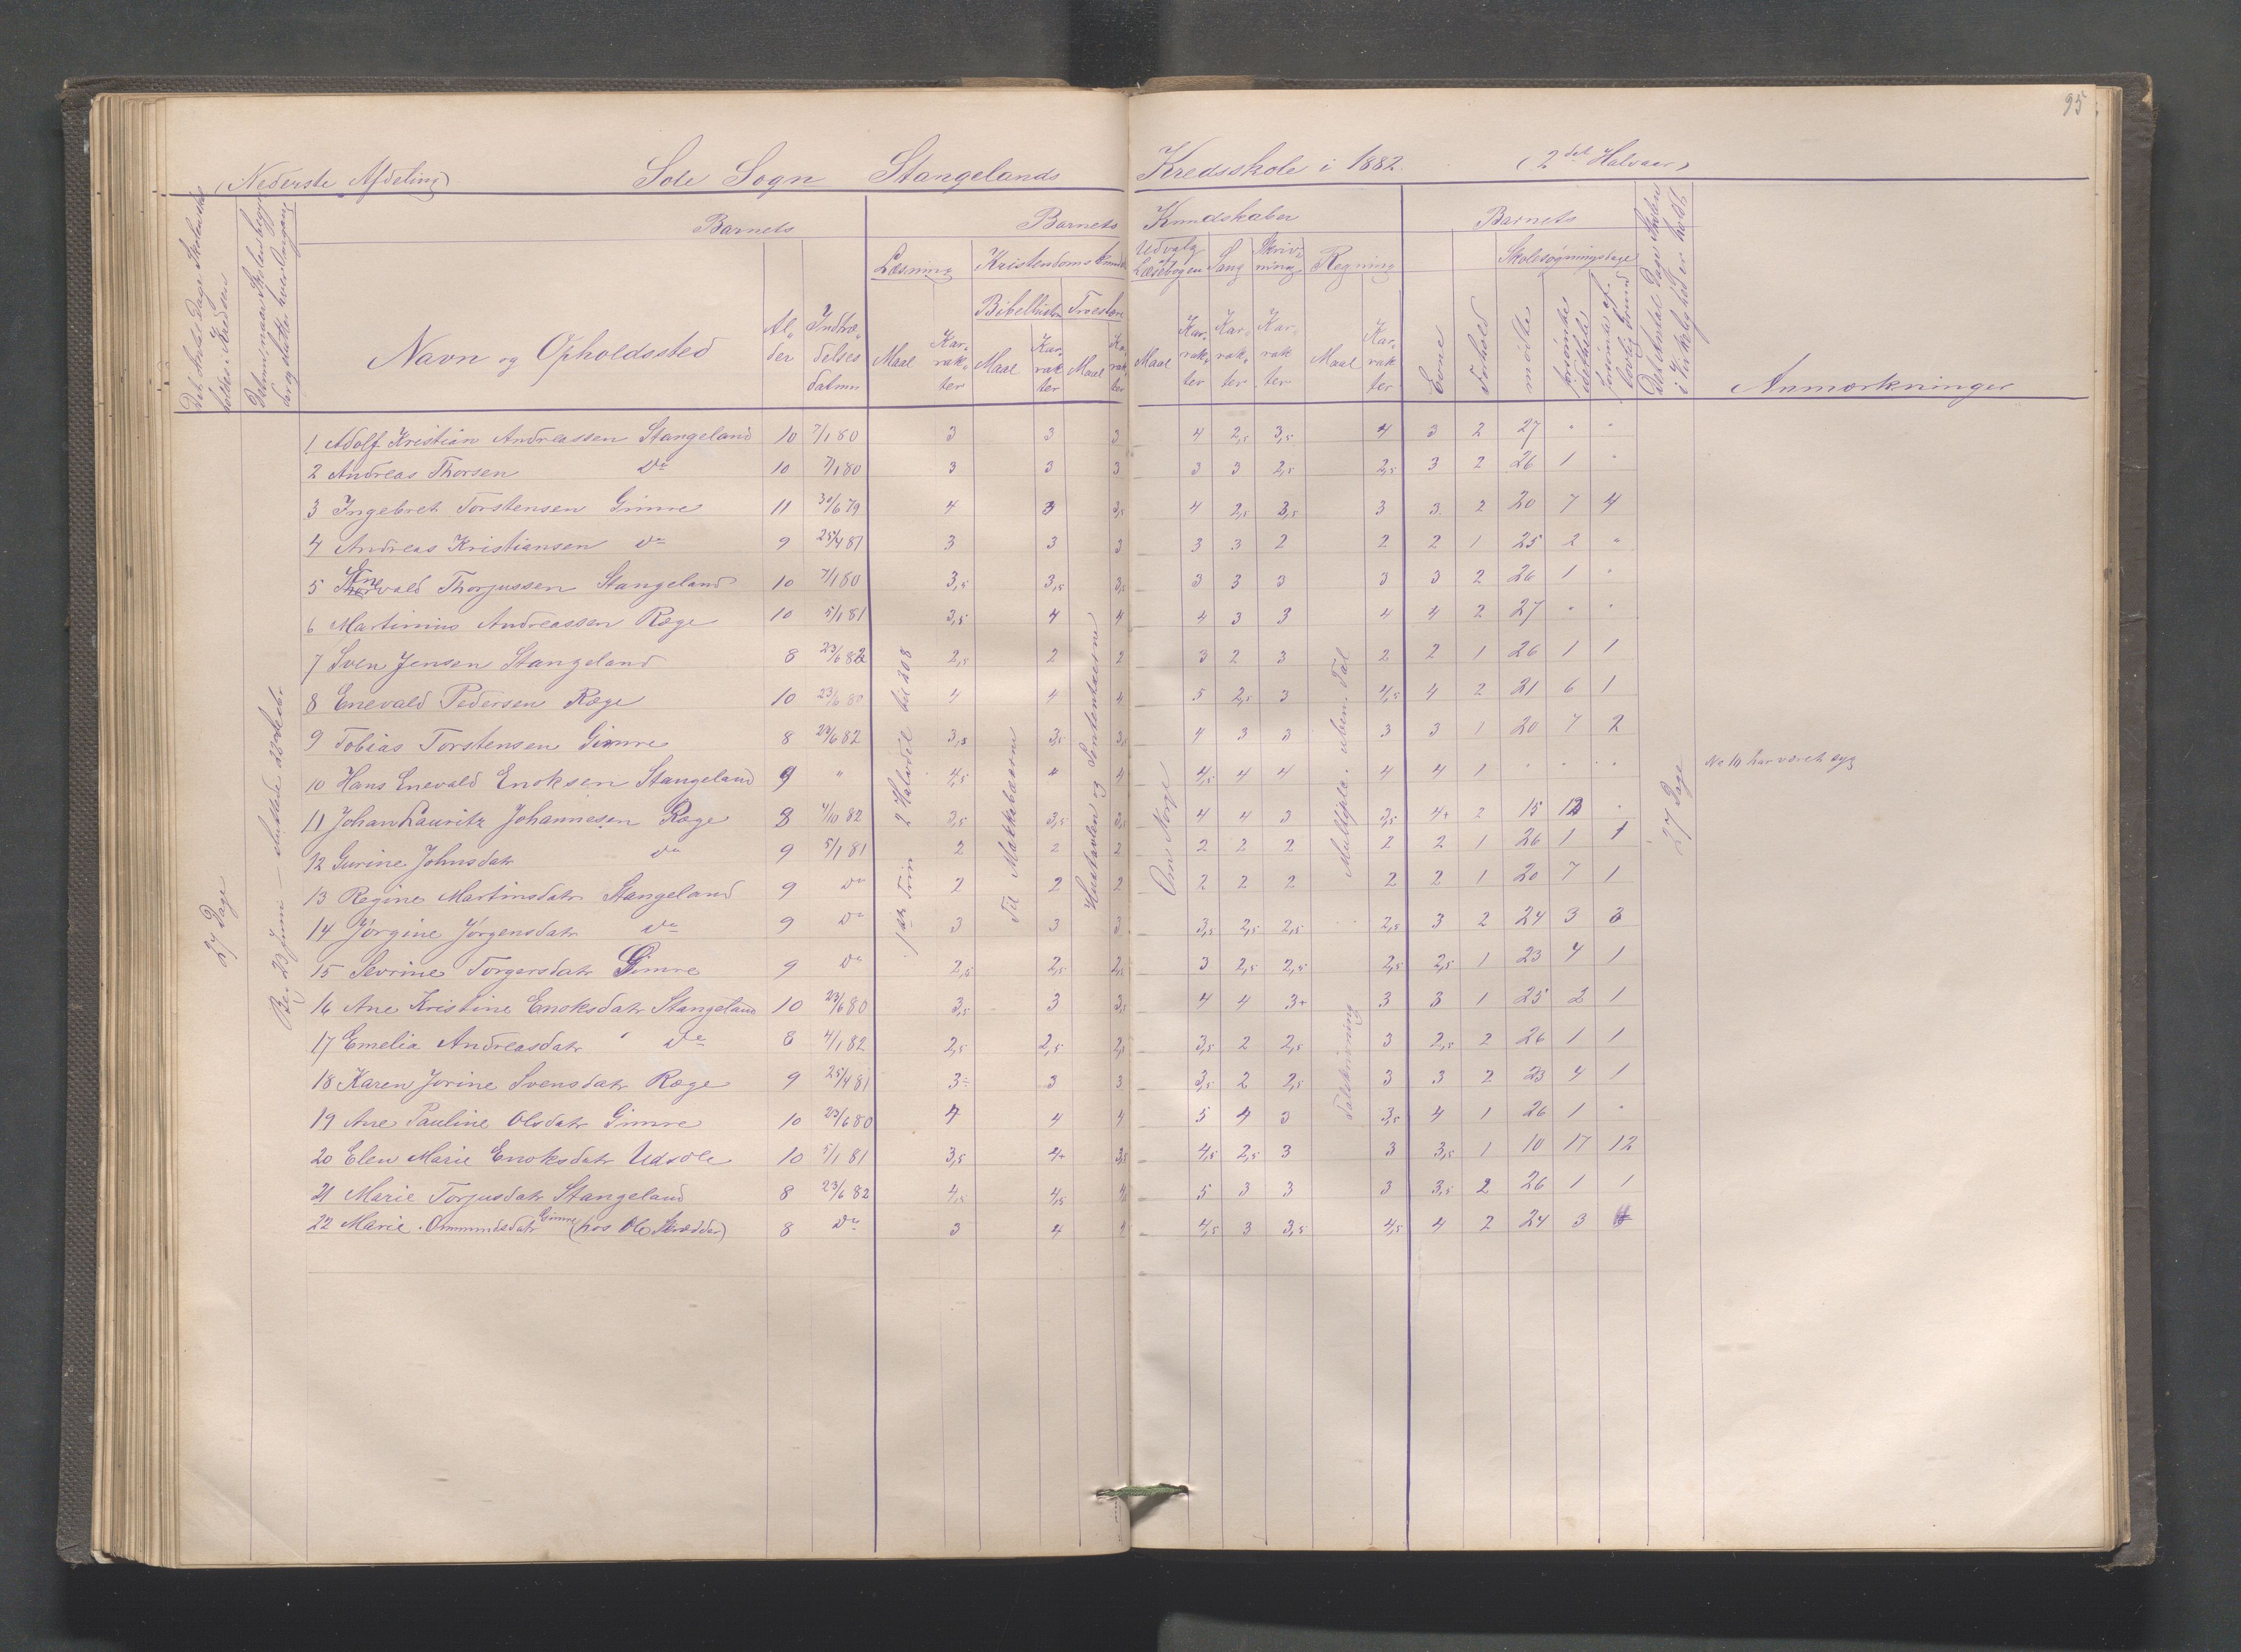 95
(Nederste Afdeling) Sole Sogn Stangelands Kredsskole i 1882. (2det Halvaar)
Det Antal Dage Skolen skal holdes i Kredsen
Datum, naar Skolen begynder og slutter hver Omgang
Barnets
Navn og Opholdssted
Al-der
Indtræ-delses datum
Barnets Kundskaber
Læsning
Maal
Karrak-ter
Kristendomskundsk
Bibelhistor
Maal
Karrak ter
Troeslære
Maal
Karrak ter
Udvalg Læsebogen
Maal
Karrak-ter
Sang
Karrak-ter
Skriv-ning
Karrak ter
Regning
Maal
Karrak ter
Barnets
Evne
Forhold
Skolesøgningsdage
mødte
forsømte i det hele
forsømte af lovlig Grund
Det Antal Dage Skolen i Virkelighed er holdt
Anmærkninger
27 Dage
Beg. 23 Juni — sluttede
1ste Trin 2 Halvdel til 208
Til Makkabæerne
Hustavlen og Sententserne
Om Norge
Multipla. uben. Tal
Talskrivning
27 Dage
1 Adolf Kristian Andreassen Stangeland 10 7/1 80 3 3 3 4 2,5 3,5 4 3 2 27 " "
2 Andreas Thorsen Do 10 7/1 80 3 3 3 3 3 2,5 2,5 3 2 26 1 "
3 Ingebret Torstensen Gimre 11 30/6 79 4 3 3,5 4 2,5 3,5 3 3 2 20 7 4
4 Andreas Kristiansen Do 9 25/4 81 3 3 3 3 3 2 2 2 1 25 2 "
5 Enevald Thorjussen Stangeland 10 7/1 80 3,5 3,5 3,5 3 3 3 3 3 2 26 1 "
6 Martinius Andreassen Ræge 10 5/1 81 3,5 4 4 4 3 3 4 4 2 27 " "
7 Sven Jensen Stangeland 8 23/6 82 2,5 2 2 3 2 3 2 2 1 26 1 1
8 Enevald Pedersen Ræge 10 23/6 80 4 4 4 5 2,5 3 4,5 4 2 21 6 1
9 Tobias Torstensen Gimre 8 23/6 82 3,5 3,5 3,5 4 3 3 3 3 1 20 7 2
10 Hans Enevald Enoksen Stangeland 9 " 4,5 4 4 4,5 4 4 4 4 1 " " " No 10 har været syg
11 Johan Lauritz Johannesen Ræge 8 4/10 82 3,5 3,5 3,5 4 4 3 3,5 4+ 2 15 12 "
12 Gurine Johnsdatr Do 9 5/1 81 2 2 2 2 2 2 2 2 1 26 1 1
13 Regine Martinsdatr Stangeland 9 Do 2 2 2 2 2 2 2 2 1 20 7 1
14 Jørgine Jørgensdatr Do 9 Do 3 3 3 3,5 2,5 2,5 2,5 3 2 24 3 3
15 Sevrine Torgersdatr Gimre 9 Do 2,5 2,5 2,5 3 2,5 2,5 2,5 2,5 1 23 4 1
16 Ane Kristine Enoksdatr Stangeland 10 23/6 80 3,5 3 3,5 4 4 3+ 3 3 1 25 2 1
17 Emelia Andreasdatr Do 8 4/1 82 2,5 2,5 2,5 3,5 2 2,5 3 2,5 2 26 1 1
18 Karen Jorine Svensdatr Ræge 9 25/4 81 3÷ 3 3 3,5 2 2,5 3 3 2 23 4 1
19 Ane Pauline Olsdatr Gimre 10 23/6 80 4 4 4 5 4 3 3,5 4 1 26 1 "
20 Elen Marie Enoksdatr Udsole 10 5/1 81 3,5 4+ 3,5 4,5 2,5 3 3 3,5 1 10 17 12
21 Marie Torjusdatr Stangeland 8 23/6 82 4,5 4,5 4 5 3 3 3 3,5 2 26 1 1
22 Marie Ommundsdatr Gimre (hos Ole Skrædder) 8 Do 3 4 4 4,5 3 3,5 4,5 4 2 24 3